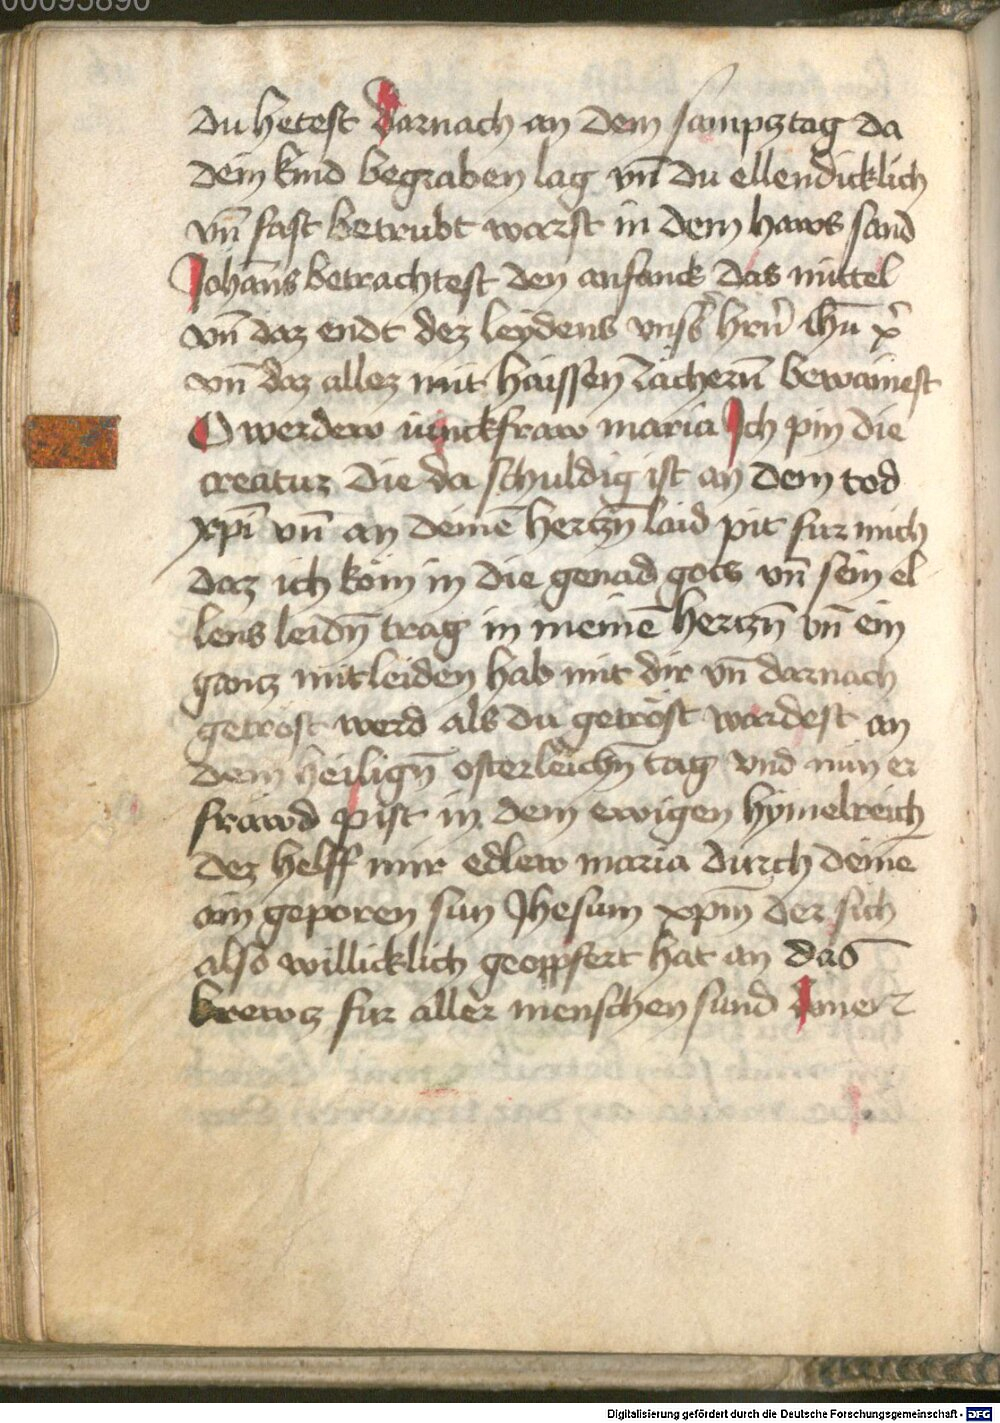 00095890
du hetest darnach an dem sampcztag da
dein kind begraben lag vn̄ du ellendicklich
vn̄ fast betrubt warst in dem haws sand
Johāns betrachtest den anfanck das mittel
vn̄ daz endt dez leydens vnss̄ hrn̄ ihū x̄
vn̄ daz allez mit haissen zächern̄ bewainest
O werdew iunckfraw maria Ich pin die
creatur die da schuldig ist an dem tod
xpī vn̄ an deinē hertzn̄ laid pit fur mich
daz ich köm in die genad gots vn̄ sein el
lens leidn̄ trag in meinē hertzn̄ vn̄ ein
gantz mitleiden hab mit dir vn̄ darnach
getröst werd als du getröst wardest an
dem heilign̄ osterleichn̄ tag vnd nun er
fräwd pist in dem ewigen hymelreich
dez helff mir edlew maria durch deinē
ain geporen sun Jhesum xpm̄ der sich
also willicklich geopfert hat an das
krewcz fur aller menschen sund Amen
Digitalisierung gefördert durch die Deutsche Forschungsgemeinschaft - DFG